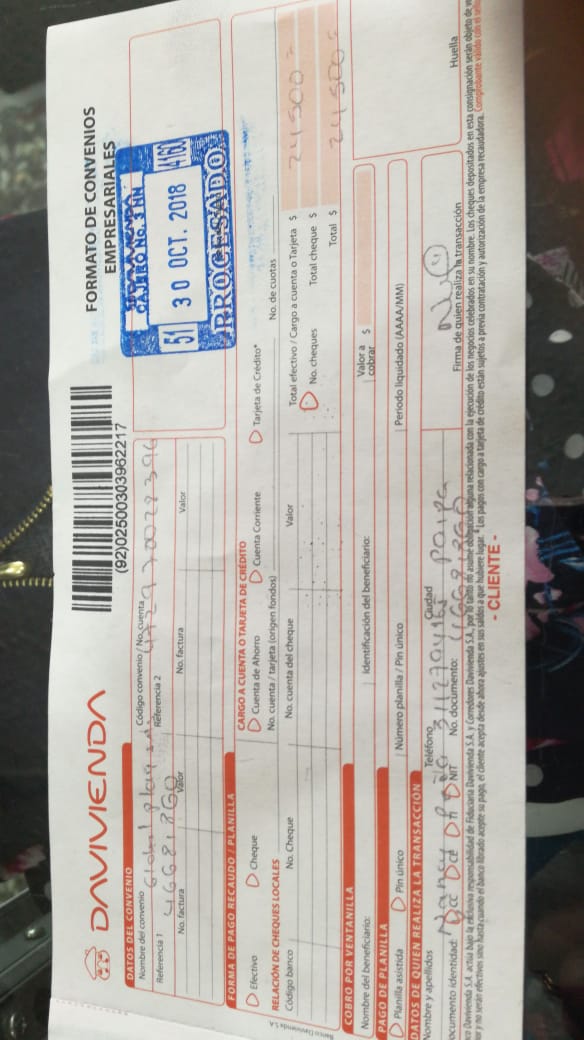 DAVIVIENDA
(92)02500303962217
FORMATO DE CONVENIOS
EMPRESARIALES
CAJERO No. 3 HN
51 30 OCT. 2018 4160
PROCESADO
DATOS DEL CONVENIO
Nombre del convenio Global
Código convenio / No. cuenta
Referencia 1 46681860
Referencia 2
No. factura Valor No. factura Valor
FORMA DE PAGO RECAUDO / PLANILLA
Efectivo Cheque
CARGO A CUENTA O TARJETA DE CRÉDITO
Cuenta de Ahorro Cuenta Corriente Tarjeta de Crédito*
No. cuenta / tarjeta (origen fondos) No. de cuotas
RELACIÓN DE CHEQUES LOCALES
Código banco No. Cheque No. cuenta del cheque Valor
Total efectivo / Cargo a cuenta o Tarjeta $ 24500=
No. cheques Total cheque $
Total $ 24500=
COBRO POR VENTANILLA
Nombre del beneficiario: Identificación del beneficiario: Valor a cobrar $
PAGO DE PLANILLA
Planilla asistida Pin único Número planilla / Pin único Periodo liquidado (AAAA/MM)
DATOS DE QUIEN REALIZA LA TRANSACCIÓN
Nombre y apellidos Nancy Teléfono Ciudad PAIPA
Documento identidad: CC CE TI NIT No. documento: 46681860
Firma de quien realiza la transacción
Huella
Banco Davivienda S.A. actúa bajo la exclusiva responsabilidad de Fiduciaria Davivienda S.A. y Corredores Davivienda S.A., por lo tanto no asume obligación alguna relacionada con la ejecución de los negocios celebrados en su nombre. Los cheques depositados en esta consignación serán objeto de
y no serán efectivos sino hasta cuando el banco librado acepte su pago, el cliente acepta desde ahora ajustes en sus saldos a que hubiere lugar. * Los pagos con cargo a tarjeta de crédito están sujetos a previa contratación y autorización de la empresa recaudadora. Comprobante válido con el
- CLIENTE -
Banco Davivienda S.A.